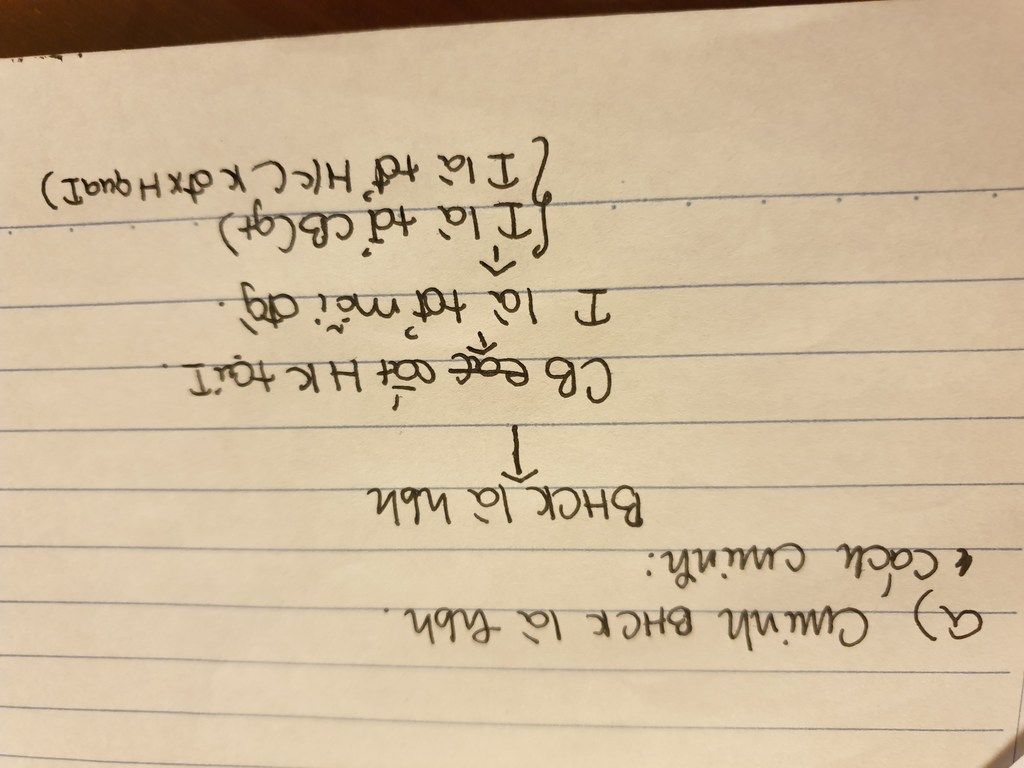 a) Cminh BHCK là hbh.
* Cách cminh:
BHCK là hbh
↑
CB cắt HK tại I.
↑
I là tđ mỗi đg.
↑
{ I là tđ CB (gt)
I là tđ HK ( K đx H qua I)